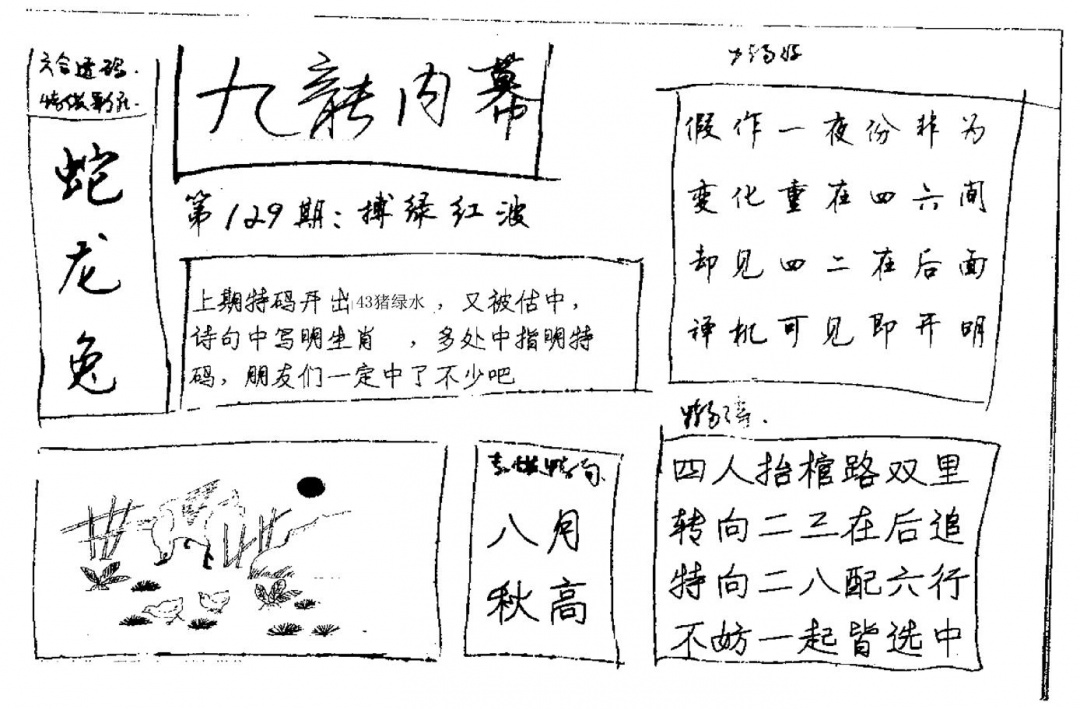 六合透码.
蛇
龙
兔
九龍内幕
第129期：搏绿红波
上期特码开出43猪绿水，又被估中，
诗句中写明生肖，多处中指明特
码，朋友们一定中了不少吧
假作一夜份非为
变化重在四六间
却见四二在后面
译机可见即开明
四人抬棺路双里
转向二三在后追
特向二八配六行
不妨一起皆选中
八月
秋高